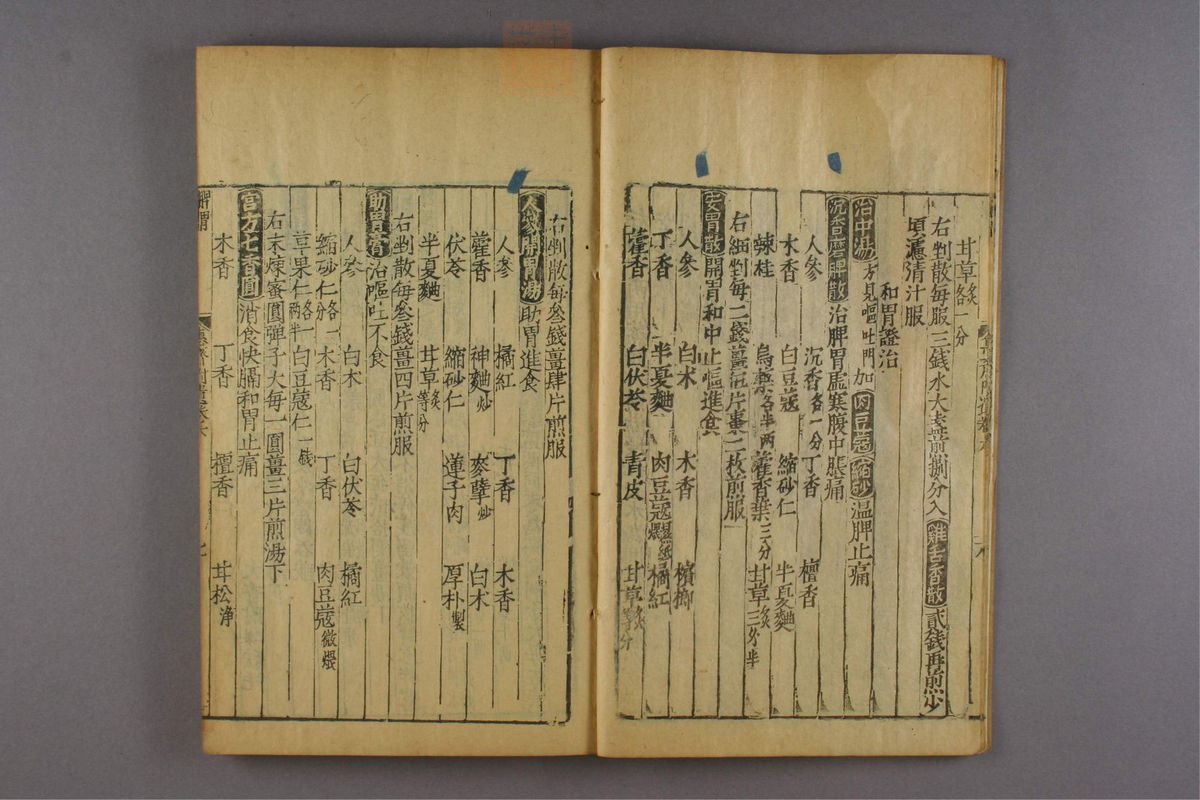 甘草炙各一分
右剉散每服三錢水大盞煎捌分入雞舌香散貳錢再煎少
頃濾清汁服
和胃證治
治中湯方見嘔吐門加肉豆蔻縮砂溫脾止痛
沉香磨脾散治脾胃虛寒腹中脹痛
人參 沉香各一分 丁香 檀香
木香 白豆蔻 縮砂仁 半夏麯
辣桂 烏藥各半兩 藿香葉三分 甘草炙三分半
右細剉每二錢薑 片棗二枚煎服
安胃散開胃和中止嘔進食
人參 白朮 木香 檳榔
丁香 半夏麯 肉豆蔻濕紙煨 橘紅
藿香 白茯苓 青皮 甘草炙等分
右剉散每叄錢薑肆片煎服
人參開胃湯助胃進食
人參 橘紅 丁香 木香
藿香 神麯炒 麥櫱炒 白朮
茯苓 縮砂仁 蓮子肉 厚朴製
半夏麯 甘草炙等分
右剉散每叄錢薑四片煎服
助胃膏治嘔吐不食
人參 白朮 白茯苓 橘紅
縮砂仁各一分 木香 丁香 肉豆蔻微煨
草果仁各一兩半 白豆蔻仁一錢
右末煉蜜圓彈子大每一圓薑三片煎湯下
官方七香圓消食快膈和胃止痛
木香 丁香 檀香 甘松淨
脾胃